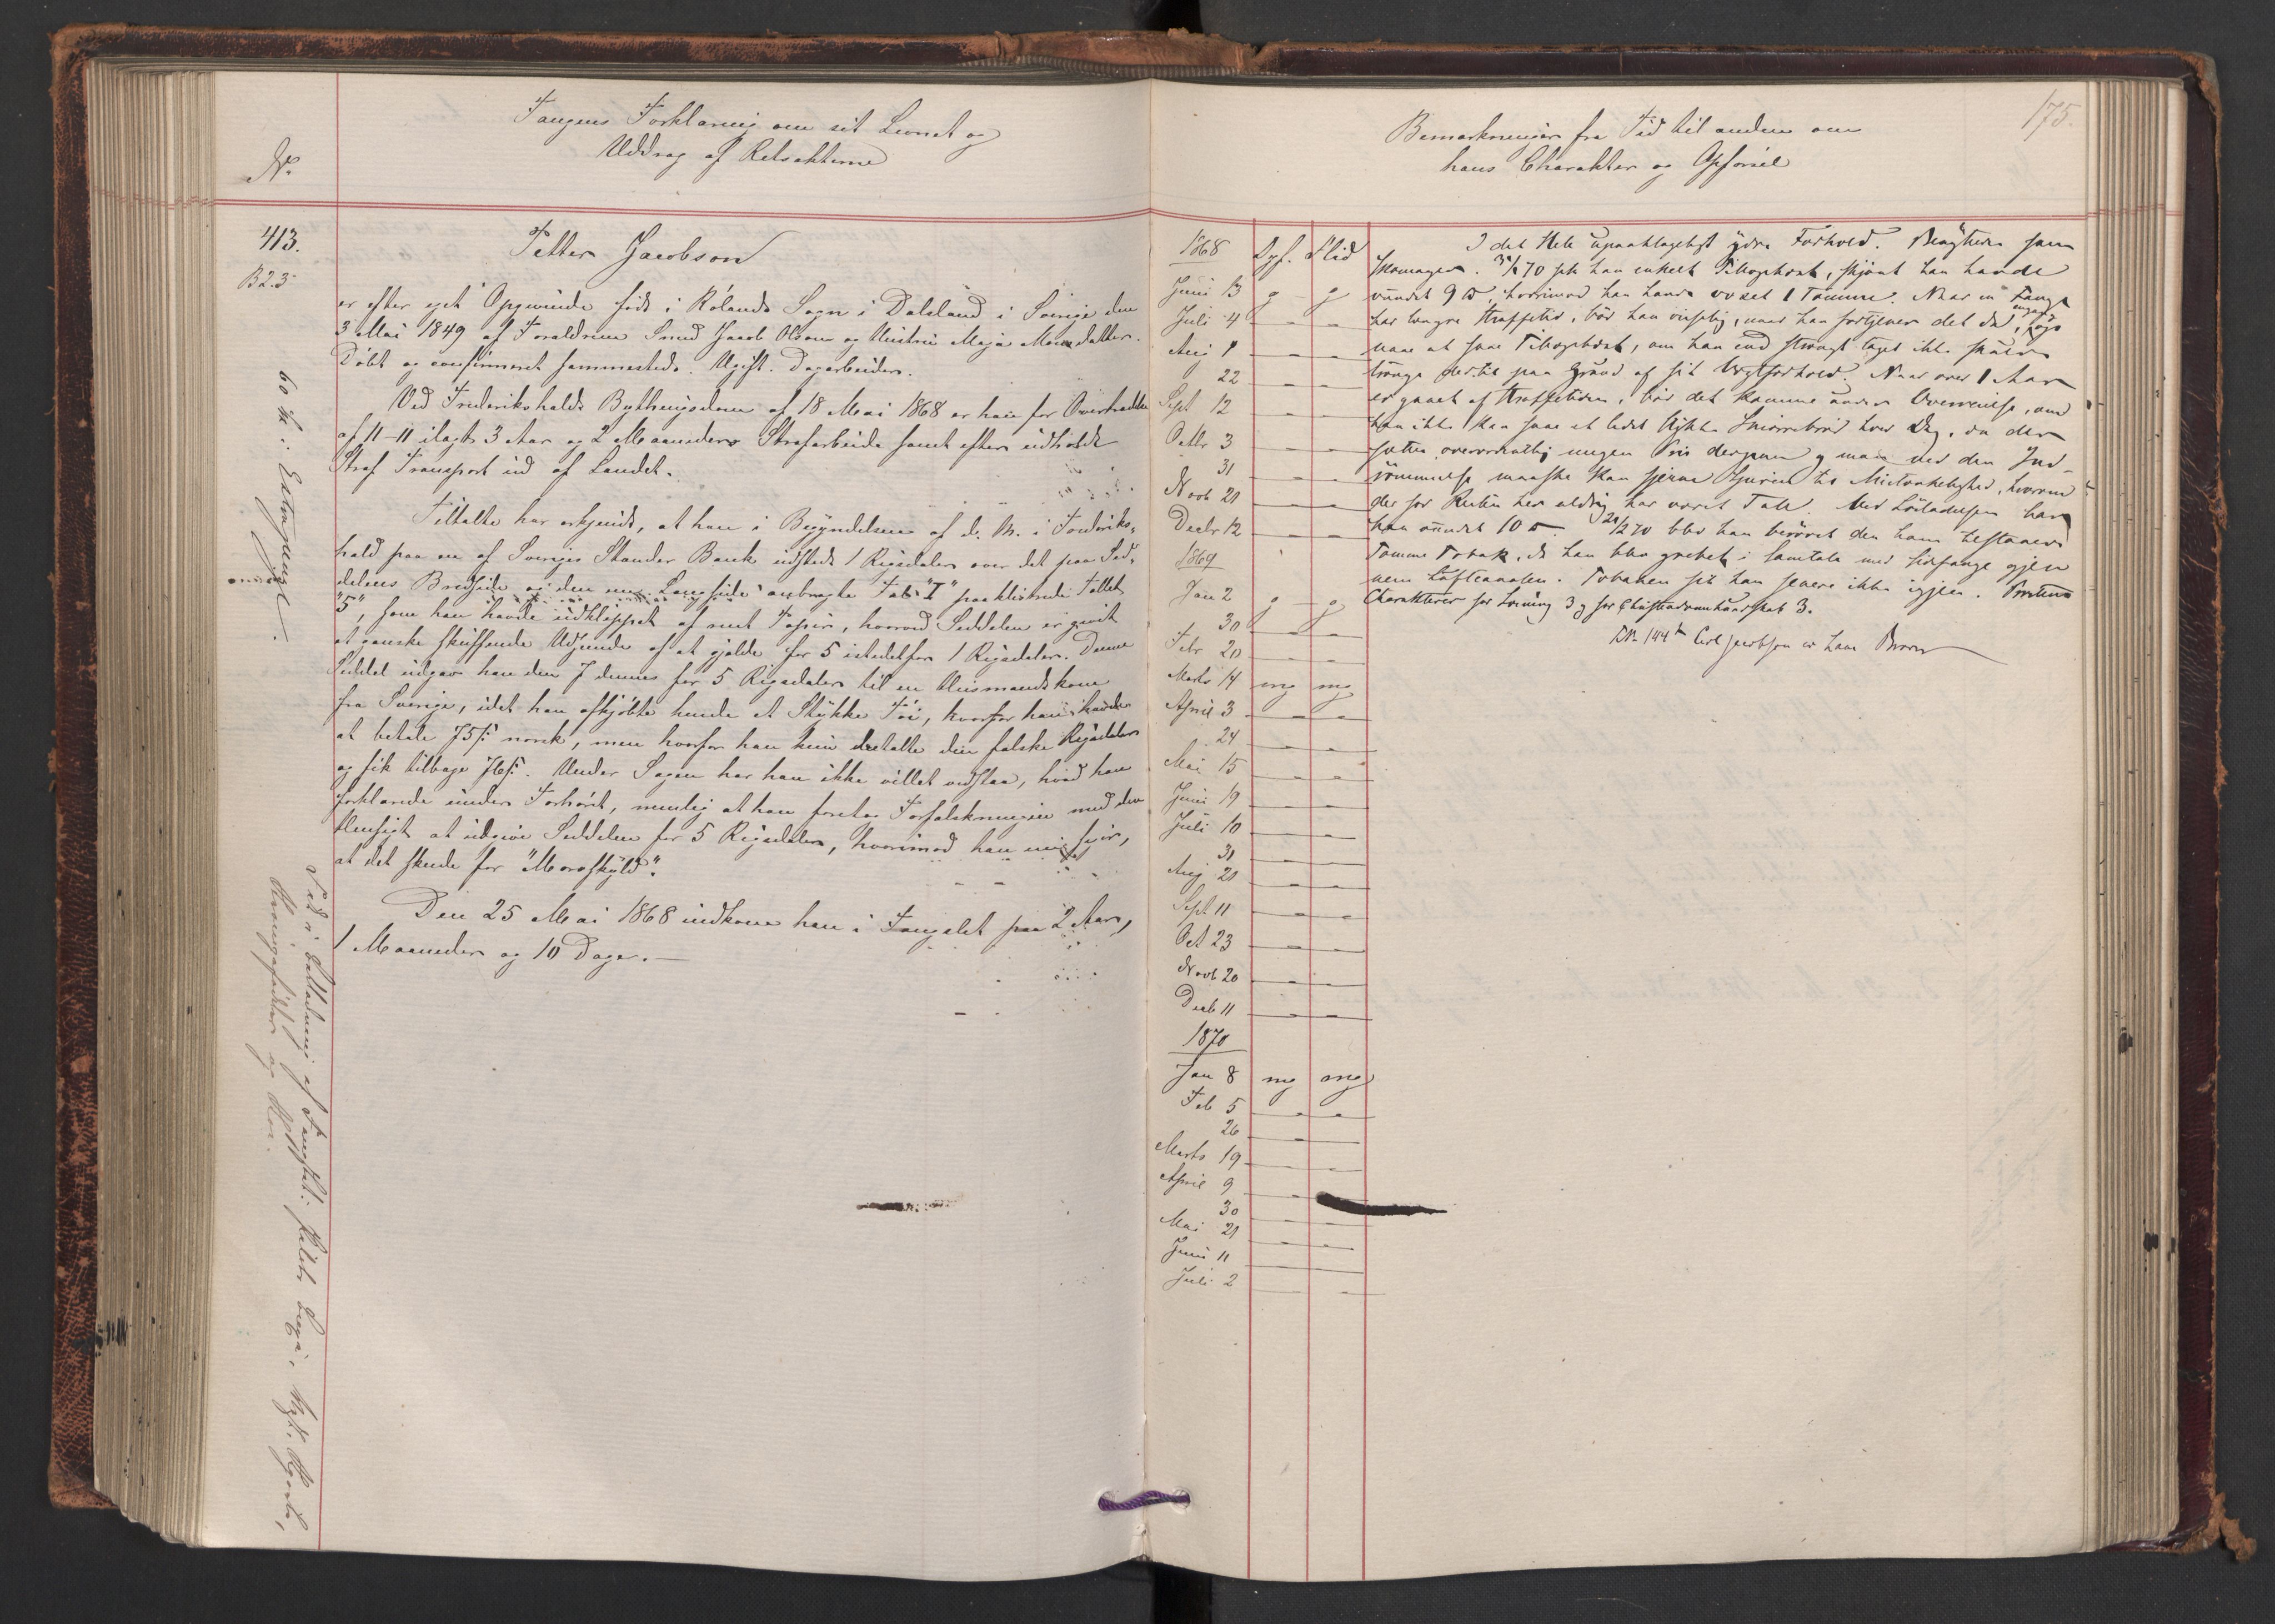 Fangens Forklaring om sit Levnet og
Uddrag af Retsakterne
No
413.
B 2.5
Petter Jacobson
er efter eget Opgivende født i Rølands Sogn i Dalsland i Sverige den
3 Mai 1849 af Forældrene Smed Jacob Olson og Hustru Maja Monsdatter.
Døbt og confirmeret sammesteds. Ugift. Dagarbeider.
Ved Frederikshalds Bythingsdom af 18 Mai 1868 er han for Overtrædelse
af 11-11 ilagt 3 Aar og 2 Maaneders Strafarbeide samt efter udholdt
Straf Transport ud af Landet.
Tiltalte har erkjendt, at han i Begyndelsen af d. M. i Frederiks-
hald paa en af Sveriges Stænder Bank udstedt 1 Rigsdaler over det paa Sed-
delens Bredside og den ene Langside anbragte Tal "I" paaklistrede Tallet
"5", som han havde udklippet af rødt Papir, hvorved Seddelen er givet
et ganske skuffende Udseende af at gjælde for 5 istedetfor 1 Rigsdaler. Denne
Seddel udgav han den 7 dennes for 5 Rigsdaler til en Huusmandskone
fra Sverige, idet han afkjøbte hende et Stykke Tøi, hvorfor han havde
at betale 75 ß norsk, men hvorfor han kun betalte den falske Rigsdaler
og fik tilbage 76 ß. Under Sagen har han ikke villet vedstaa, hvad han
forklarede under Forhøret, nemlig at han foretog Forfalskningen med den
Hensigt at udgive Seddelen for 5 Rigsdaler, hvorimod han nu siger,
at det skede for "Moroskyld".
Den 25 Mai 1868 indkom han i Fængslet paa 2 Aar,
1 Maaneder og 10 Dage.
60 H:
Sed i Udtalelse af Fængsl:
175.
Bemærkninger fra Tid til anden om
hans Charakter og Opførsel
1868 Opf. Flid
Juni 13 g g
Juli 4 - -
Aug 1 - -
22 - -
Sept 12 - -
Octbr 3 - -
31 - -
Novb 21 - -
Decbr 12 - -
1869
Jan 2 g g
30 - -
Febr 20 - -
Marts 14 mg mg
April 3 - -
24 - -
Mai 15 - -
Juni 19 - -
Juli 10 - -
31 - -
Aug 21 - -
Sept 11 - -
Oct 23 - -
Novb 20 - -
Decb 11 - -
1870
Jan 8 mg mg
Feb 5 - -
26 - -
Marts 19 - -
April 9 - -
30 - -
Mai 21 - -
Juni 11 - -
Juli 2 - -
I det Hele upaaklageligt ydre Forhold. Benyttedes som
Skomager. 70 fik han enkelt Tillægskost, skjønt han havde
vundet 9 ℔, hvorimod han havde voxet 1 Tomme. Naar en Fange
har længre Straffetid, bør han vistnok, naar han fortjener det da,
naae at faae Tillægskost, om han end strængt taget ikke skulde
trænge dertil paa Grund af sit Vægtforhold. Naar over 1 Aar
er gaaet af Straffetiden, bør det komme under Overveielse, om
han ikke kan faae et lidet Stykke Smørrebrød hver Dag, da
man ved den Ind-
rømmelse maaske kan fjerne
der for Resten her aldrig har været Tale. Ved Løsladelsen har
han vundet 10 ℔. 70 blev han berøvet den ham tilstaaede
Tomme Tobak, da han blev grebet i Samtale med Sidefange gjen-
nem Luftcanalen. Tobaken fik han senere ikke igjen.
Charakteer for Læsning 3 og for Christendomskundskab 3.
FNo 144 Carl Jacobson er hans Broder